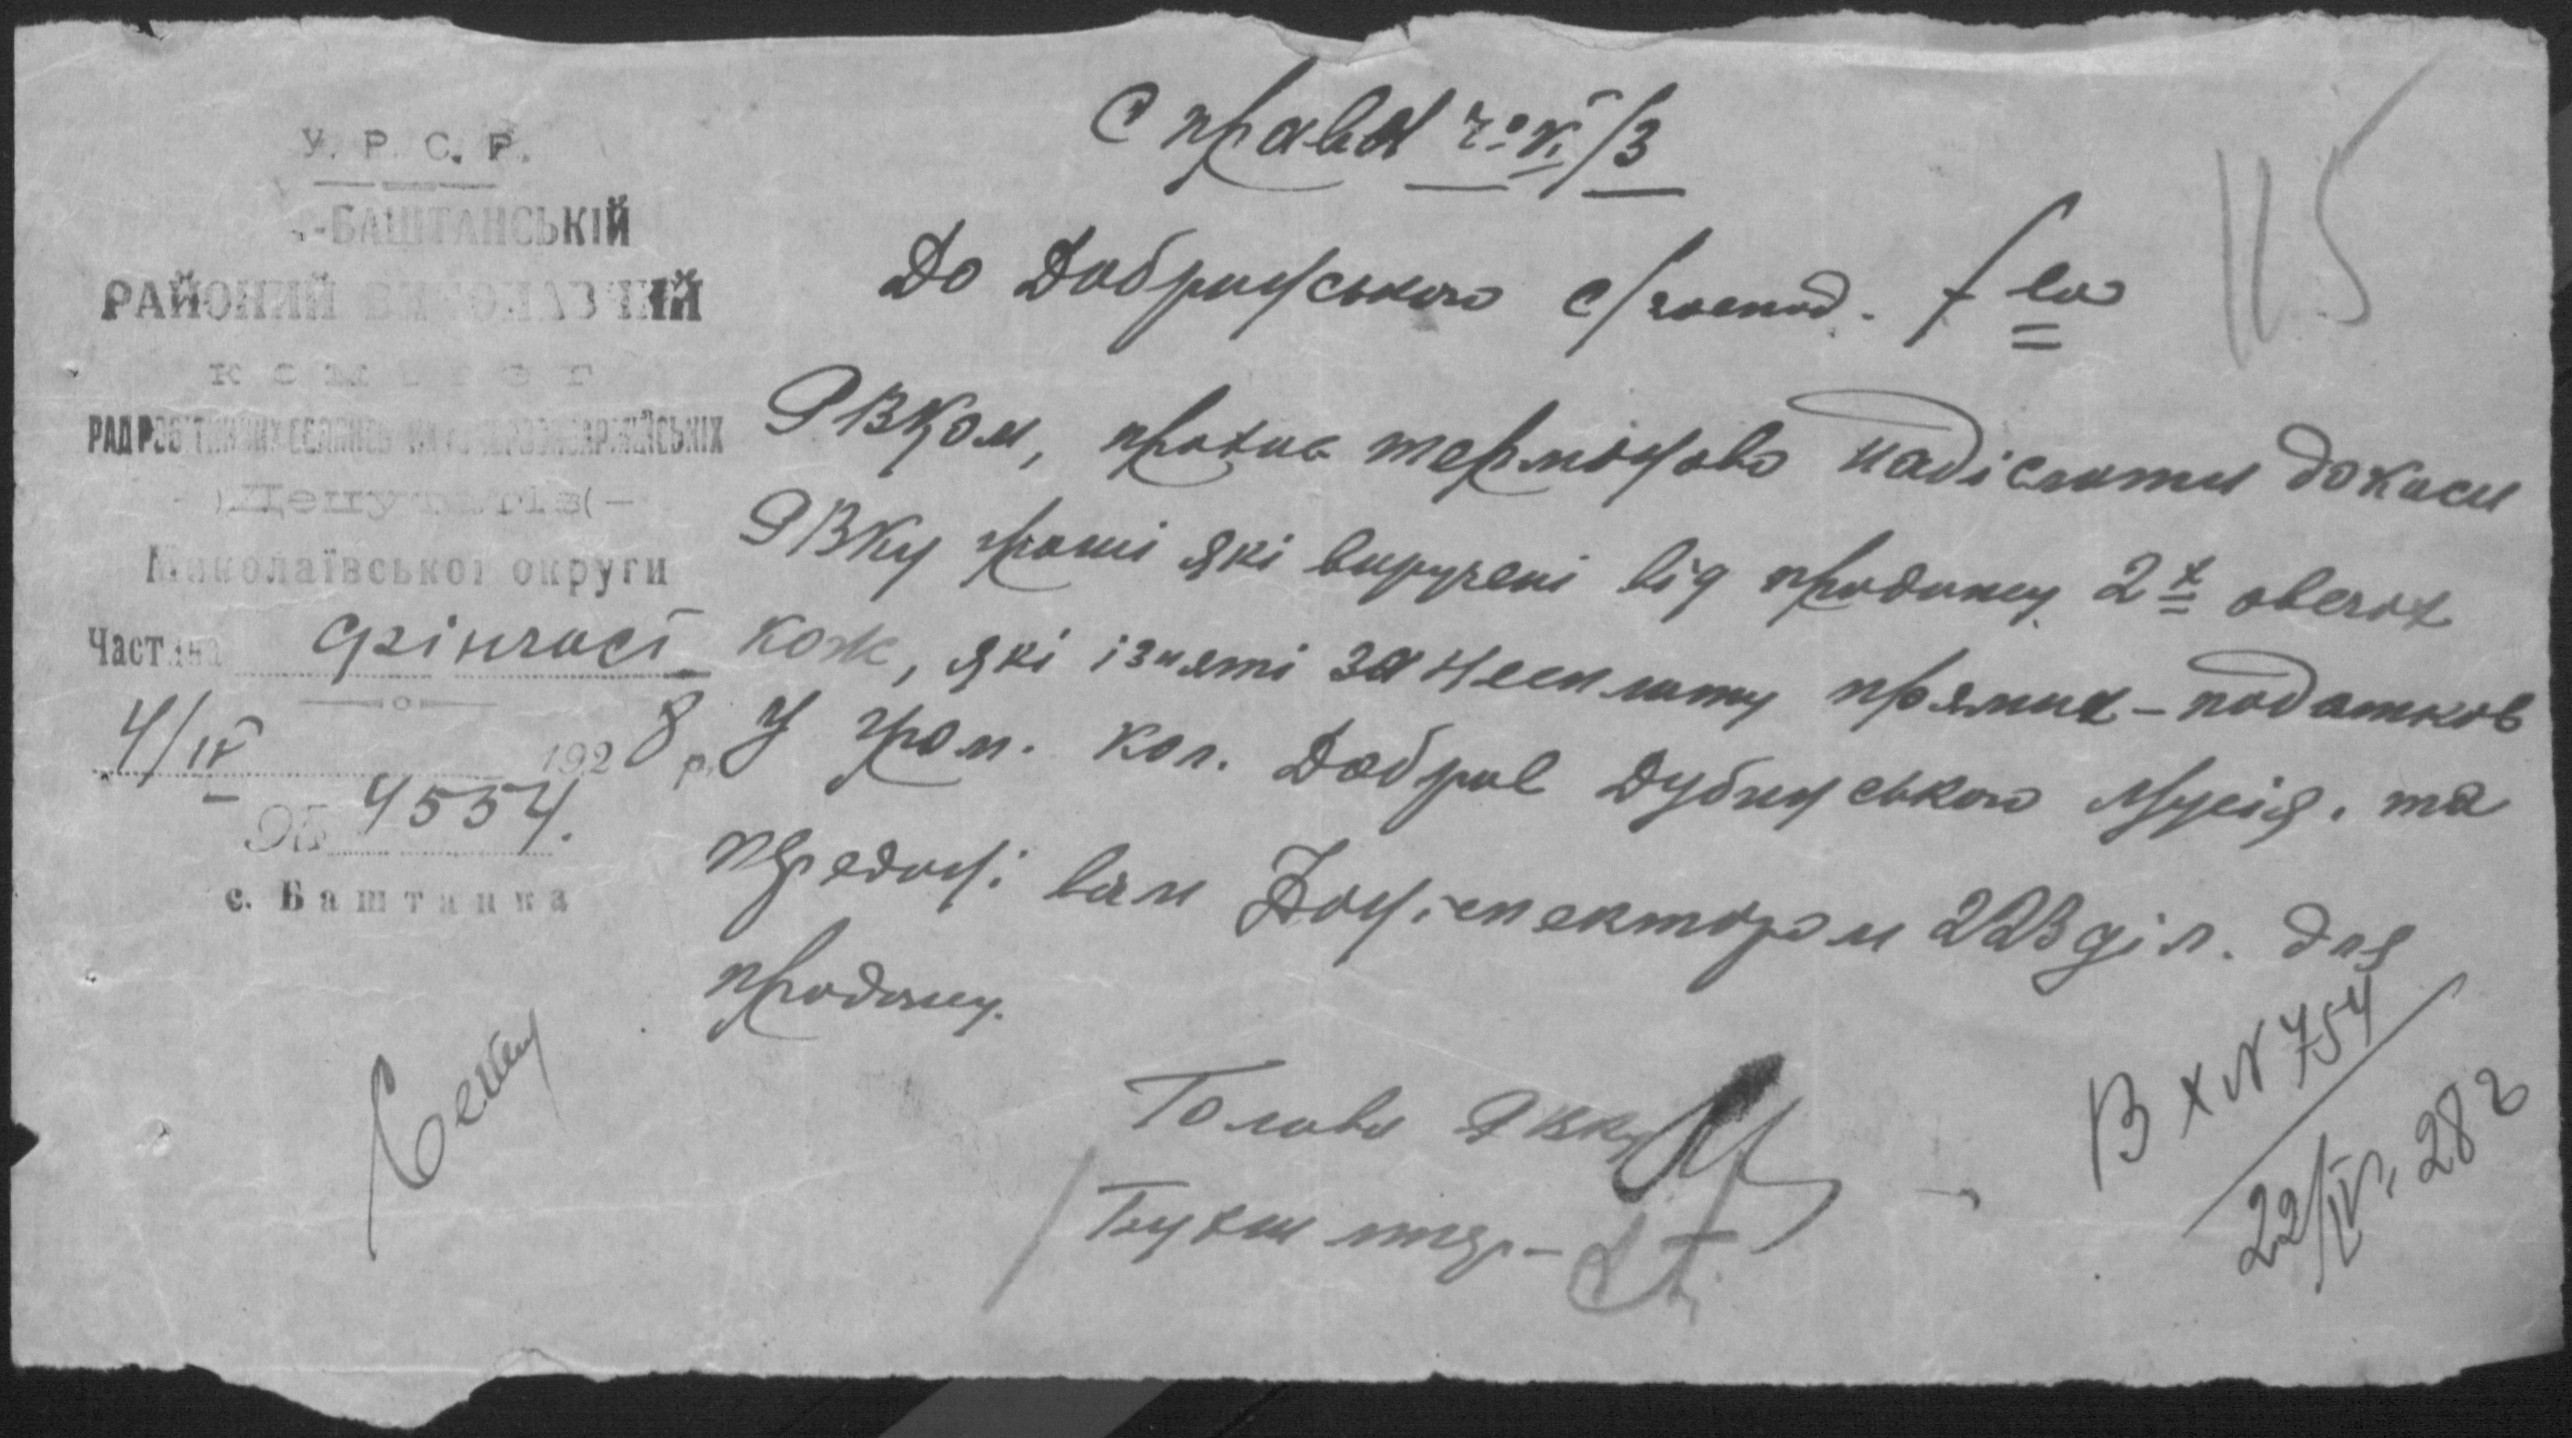 У. Р. С. Р.
-БАШТАНСЬКІЙ
РАЙОНИЙ ВИКОНАВЧИЙ
КОМІТЕТ
РАД РОБІТНИЧИХ СЕЛЯНСЬКИХ ЧЕРВОНОАРМІЙСЬКІХ
-)Депутатів(-
Миколаївської округи
Частина фінчасті
4/IV 1928 р.
№ 4554.
с. Баштанка
Справа
115
До Добринського с/господ. т-ва
РВКом, прохає терміново надіслати до каси
РВКу гроші які виручені від продажу 2х овечих
кож, які ізняті за несплату прямих-податков
У гром. кол. Добрив Дубинського Мусія. та
передані вам Фінінспектором 223 діл. для
продажу.
Голова РВКу
Бухгалтер-
Вх N 754
22/IV. 28 г